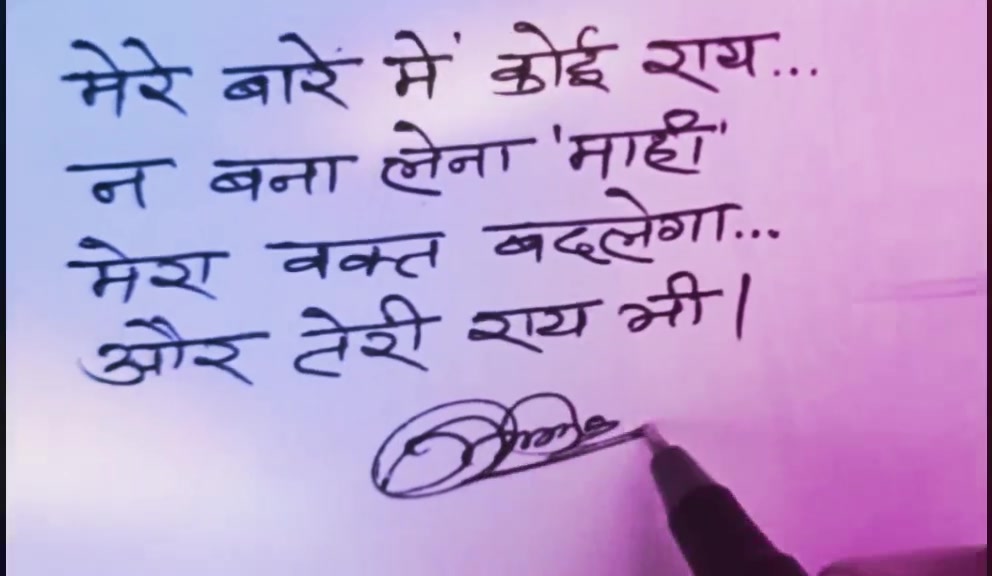 मेरे बारें में कोई राय...
न बना लेना 'माही'
मेरा वक्त बदलेगा...
और तेरी राय भी।